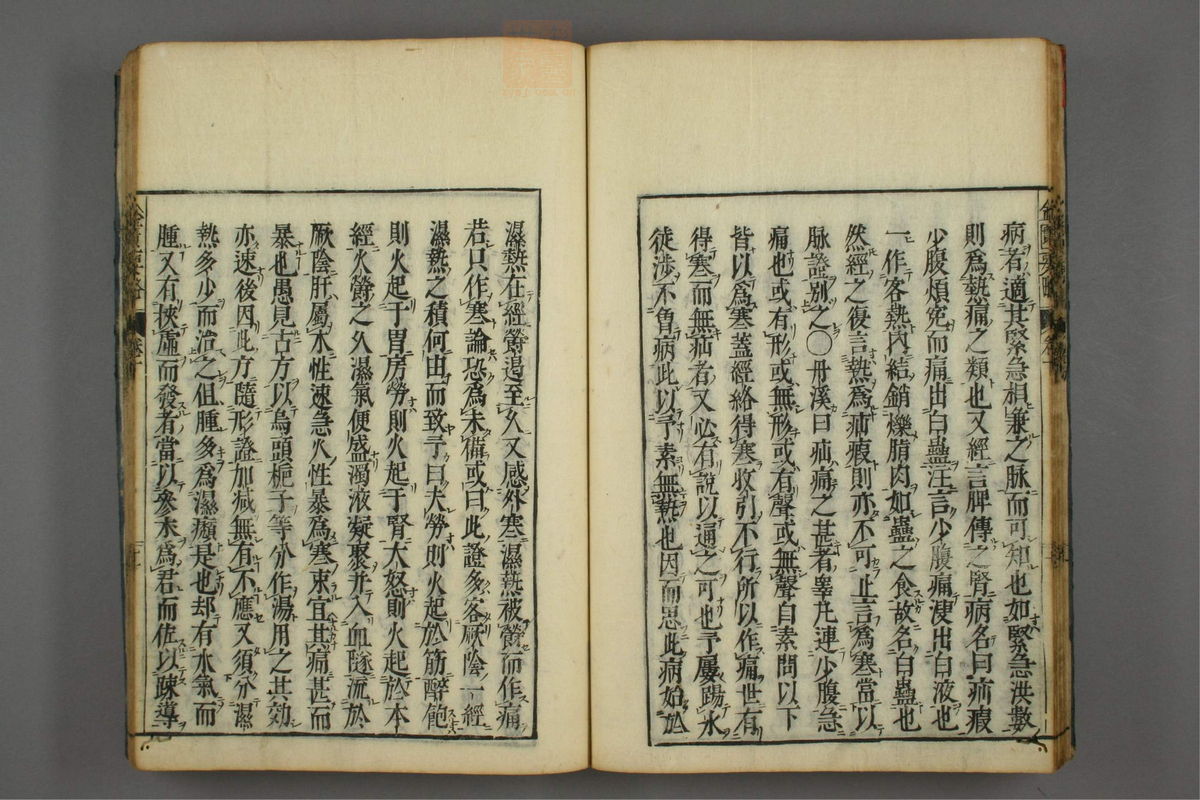 病者適其緊急相兼之脉而可知也如緊急洪數
則爲熱痛之類也又經言脾傳之腎病名曰疝瘕
少腹煩冤而痛出白蠱注言少腹痛溲出白液也
一作客熱內結銷爍脂肉如蠱之食故名白蠱也
然經之復言熱爲疝瘕則亦不可止言爲寒當以
脉證別之〇丹溪曰疝痛之甚者睾丸連少腹急
痛也或有形或無形或有聲或無聲自素問以下
皆以爲寒蓋經絡得寒收引不行所以作痛世有
得寒而無疝者又必有說以通之可也予屢踢水
徒涉不曾病此以予素無熱也因而思此病始於
濕熱在經鬱遏至久又感外寒濕熱被鬱而作痛
若只作寒論恐爲未備或曰此證多客厥陰一經
濕熱之積何由而致予曰大勞則火起於筋醉飽
則火起于胃房勞則火起于腎大怒則火起於本
經火鬱之久濕氣便盛濁液凝聚并入血隧流於
厥陰肝屬木性速急火性暴爲寒束宜其痛甚而
暴也愚見古方以烏頭梔子等分作湯用之其効
亦速後因此方隨形證加减無有不應又須分濕
熱多少而治之但腫多爲濕癩是也却有水氣而
腫又有挾虛而發者當以參朮爲君而佐以疎導